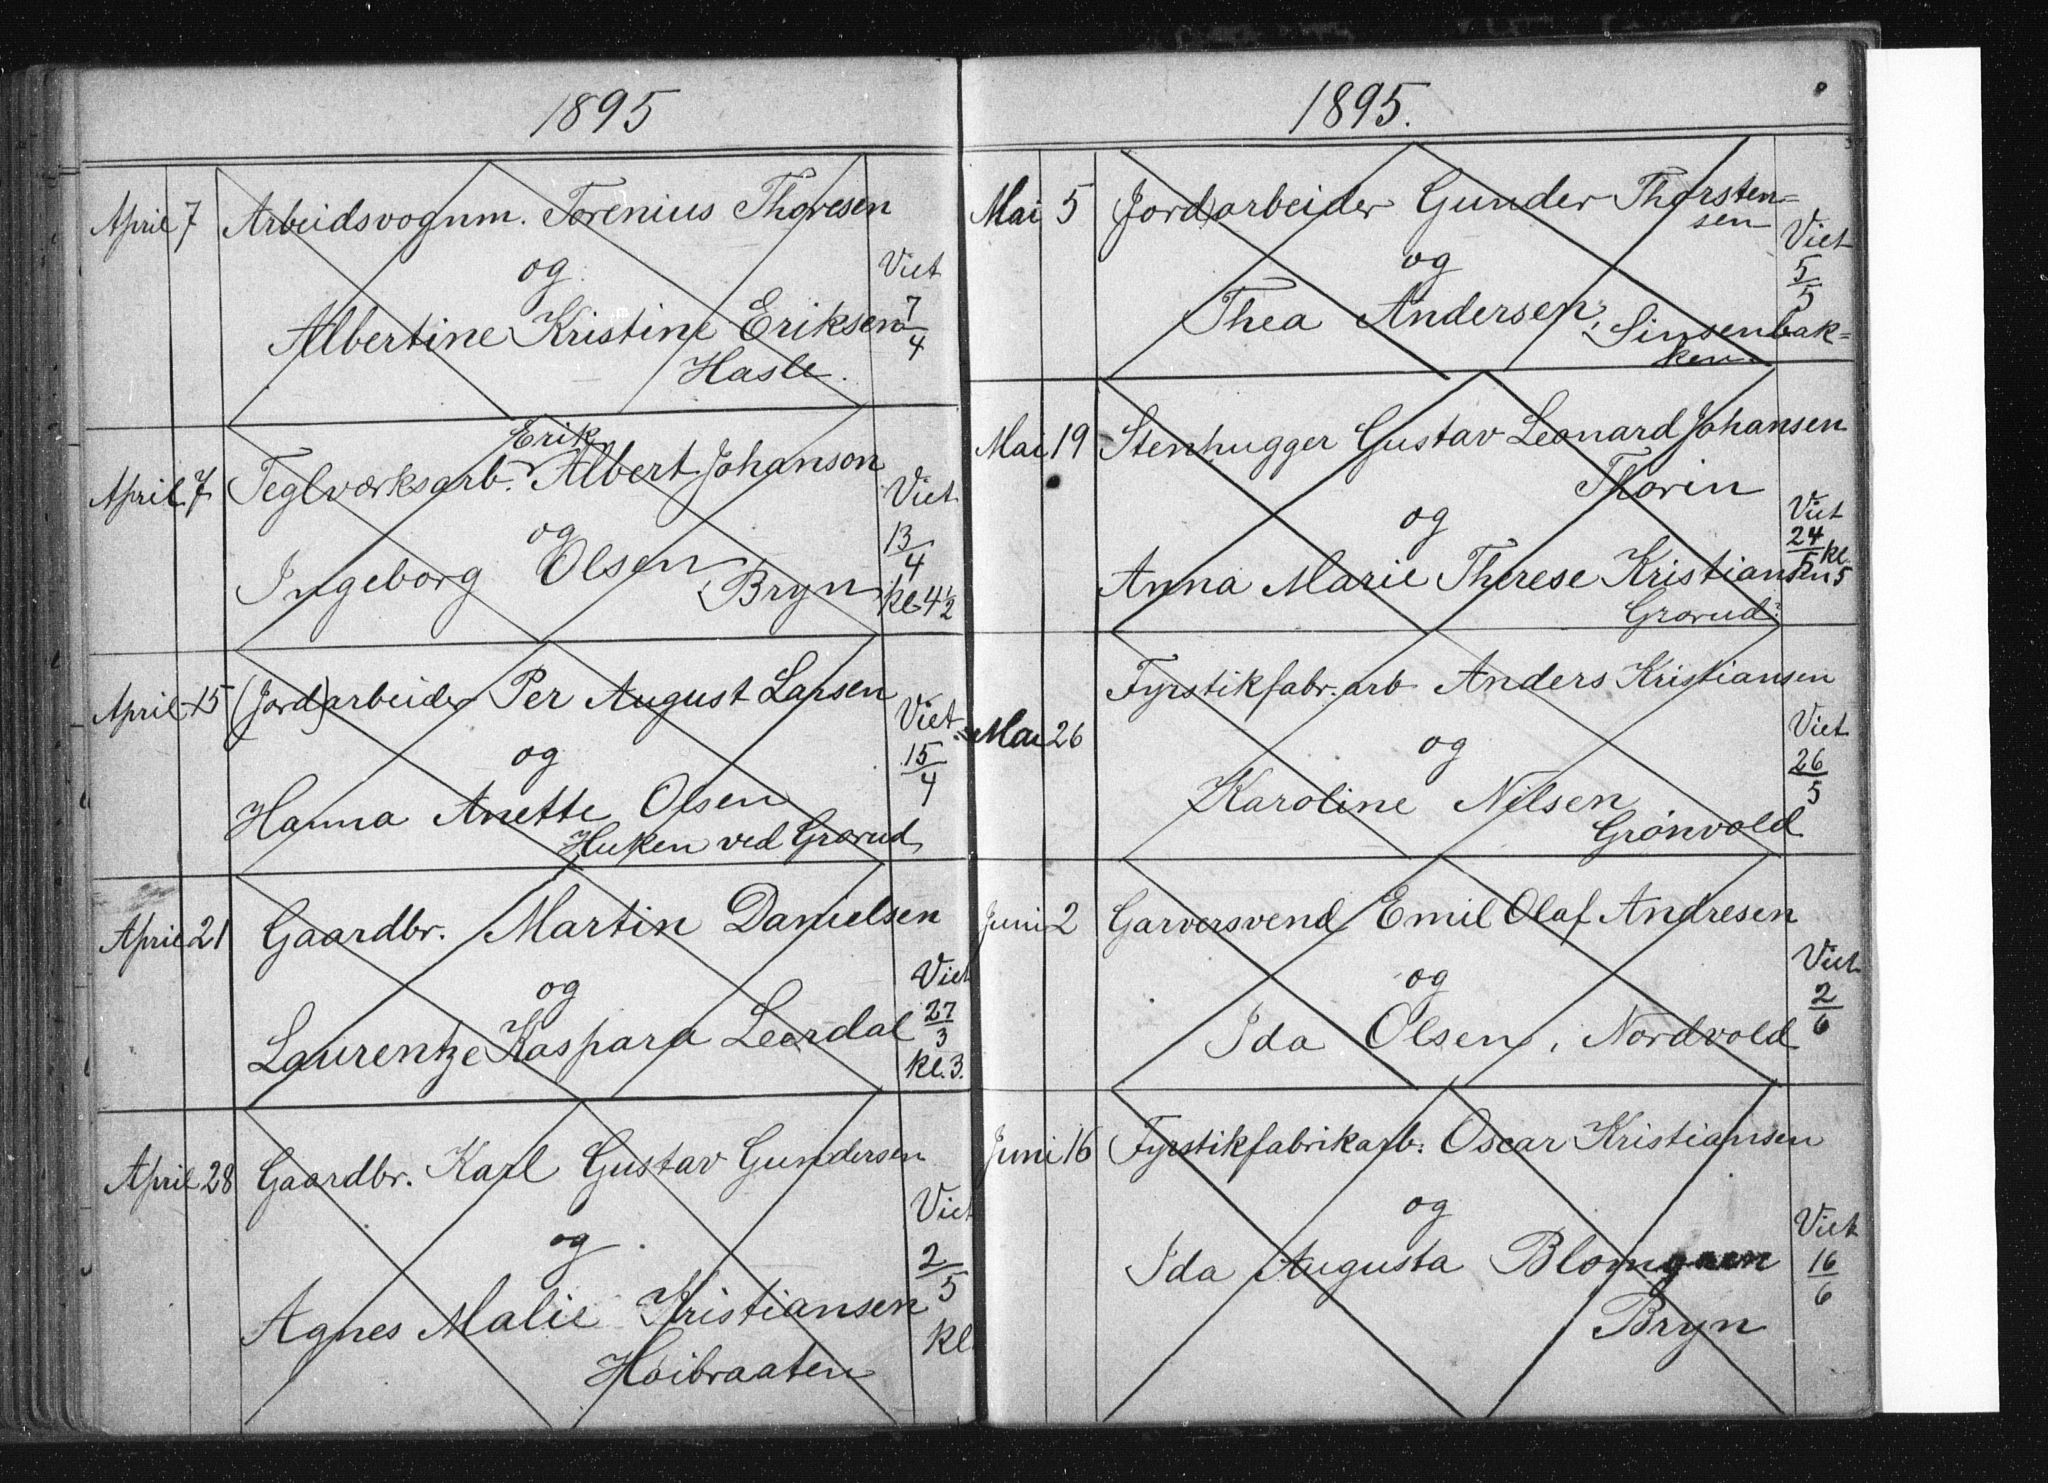 1895
April 7 Arbeidsvognm. Torenius Thoresen
og Viet
Albertine Kristine Eriksen 7/4
Hasle.
Erik
April 7 Teglværksarb. Albert Johanson
og Viet 13/4
Ingeborg Olsen, Bryn kl. 4 1/2
April 15 (Jord)arbeider Per August Larsen
og Viet 15/4
Hanna Anette Olsen
Huken ved Grorud
April 21 Gaardbr. Martin Danielsen
og Viet 27/3
Laurentze Kaspara Leerdal kl. 3.
April 28 Gaardbr. Karl Gustav Gundersen
og Viet 2/5
Agnes Malie Kristiansen kl
Høibraaten
1895.
Mai 5 (Jord)arbeider Gunder Thorsten=
sen
og Viet 5/5
Thea Andersen, Sinsenbak=
ken.
Mai 19 Stenhugger Gustav Leonard Johansen
Thorin
og Viet 24/5 kl. 5
Anna Marie Therese Kristiansen
Grorud.
Fyrstikfabr. arb Anders Kristiansen
Mai 26 og Viet 26/5
Karoline Nilsen
Grønvold
Juni 2 Garversvend Emil Olaf Andresen
og Viet 2/6
Ida Olsen, Nordvold
Juni 16 Fyrstikfabrikarb. Oscar Kristiansen
og Viet 16/6
Ida Augusta
Bryn